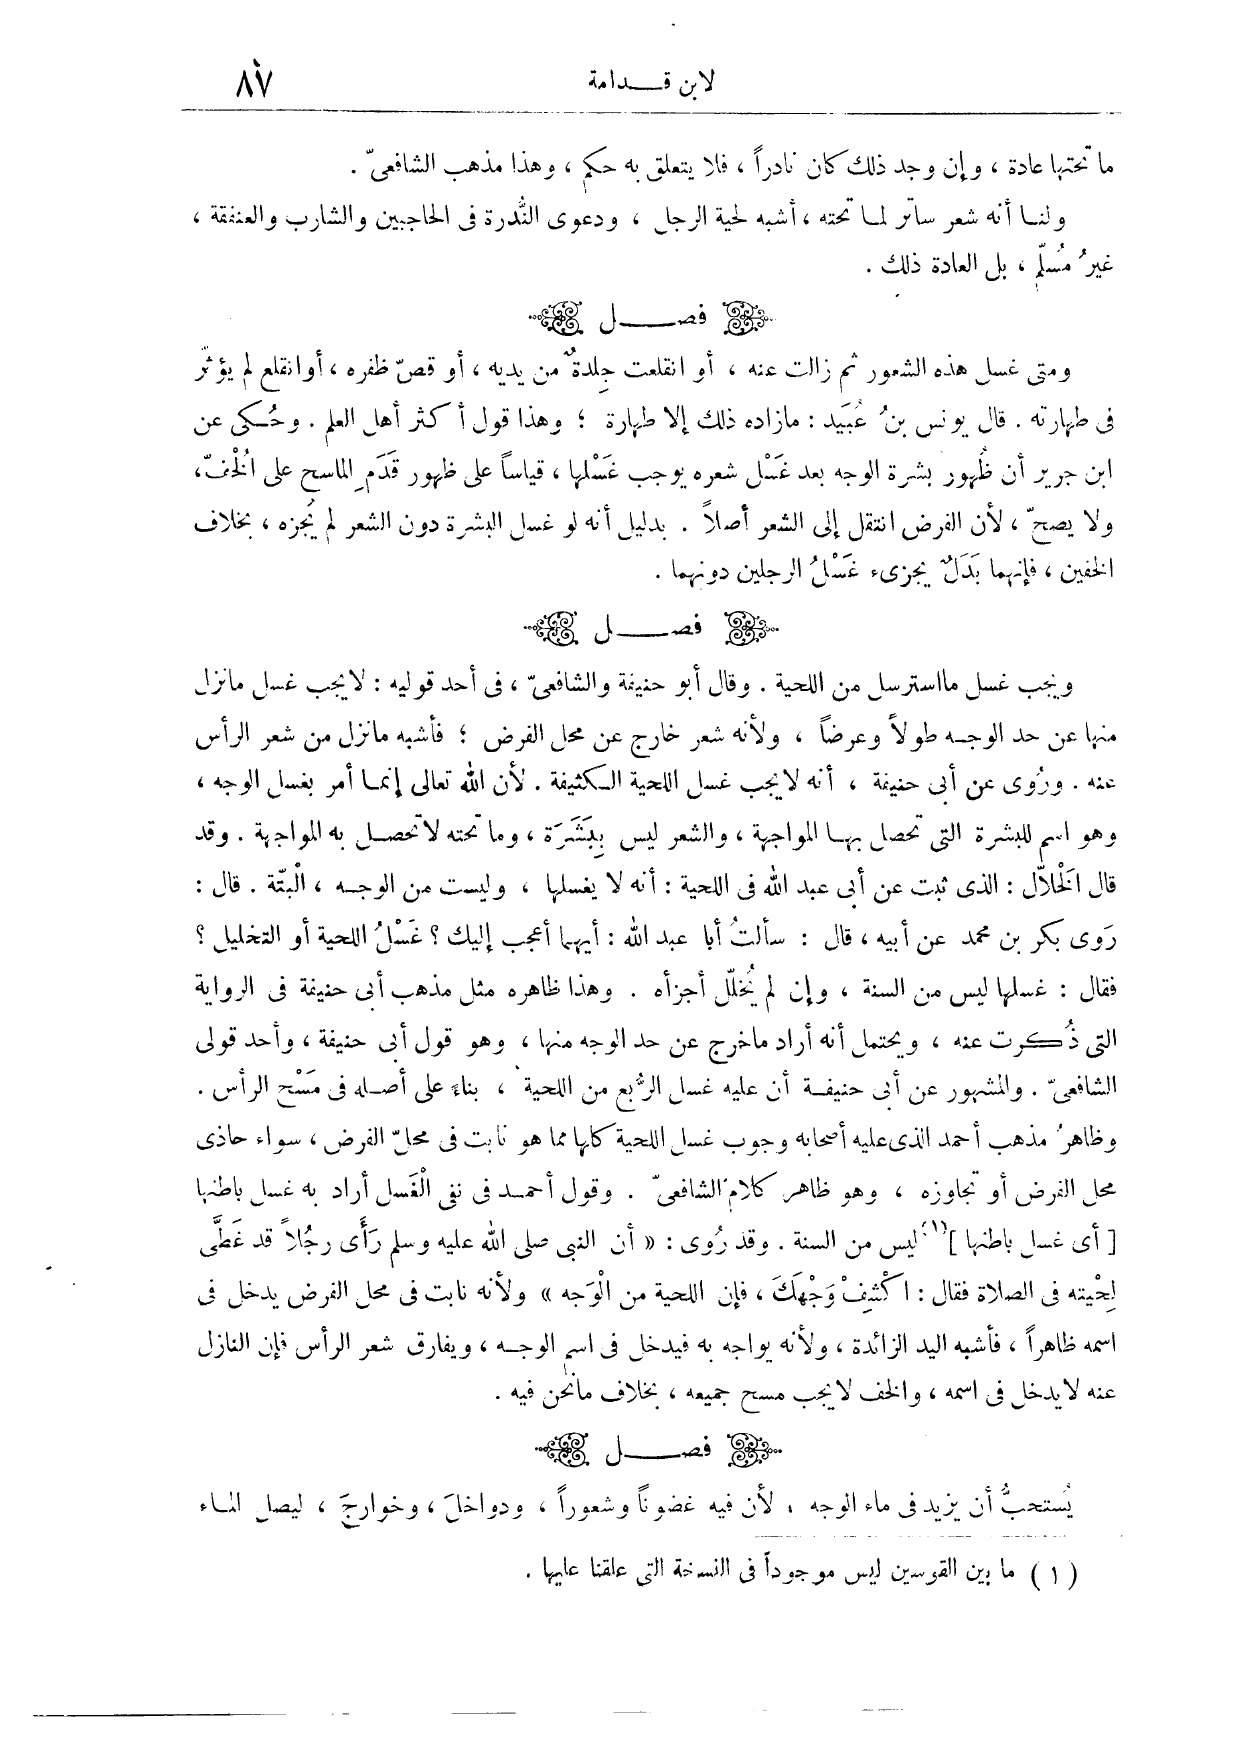 لابن قدامة ٨٧
ما تحتها عادة ، وإن وجد ذلك كان نادراً ، فلا يتعلق به حكم ، وهذا مذهب الشافعىّ .
ولنا أنه شعر ساتر لما تحته ، أشبه لحية الرجل ، ودعوى النُّدرة فى الحاجبين والشارب والعنفقة ،
غيرُ مُسلّم ، بل العادة ذلك .
فصل
ومتى غسل هذه الشعور ثم زالت عنه ، أو انقلعت جِلدةٌ من يديه ، أو قصّ ظفره ، أو انقلع لم يؤثّر
فى طهارته . قال يونس بنُ عُبَيد : مازاده ذلك إلا طهارة ؛ وهذا قول أكثر أهل العلم . وحُكى عن
ابن جرير أن ظُهور بشرة الوجه بعد غَسْل شعره يوجب غَسْلها ، قياساً على ظهور قَدَمِ الماسح على الْخُفّ ،
ولا يصحّ ، لأن الفرض انتقل إلى الشعر أصلاً . بدليل أنه لو غسل البشرة دون الشعر لم يُجزه ، بخلاف
الخفين ، فإنهما بَدَلٌ يجزىء غَسْلُ الرجلين دونهما .
فصل
ويجب غسل مااسترسل من اللحية . وقال أبو حنيفة والشافعىّ ، فى أحد قوليه : لايجب غسل مانزل
منها عن حد الوجه طولاً وعرضاً ، ولأنه شعر خارج عن محل الفرض ؛ فأشبه مانزل من شعر الرأس
عنه . ورُوى عن أبى حنيفة ، أنه لايجب غسل اللحية الكثيفة . لأن الله تعالى إنما أمر بغسل الوجه ،
وهو اسم للبشرة التى تحصل بها المواجهة ، والشعر ليس بِبَشَرَة ، وما تحته لاتحصل به المواجهة . وقد
قال الْخَلاّل : الذى ثبت عن أبى عبد الله فى اللحية : أنه لا يغسلها ، وليست من الوجه ، الْبتّة . قال :
رَوى بكر بن محمد عن أبيه ، قال : سألتُ أبا عبد الله : أيهما أعجب إليك ؟ غَسْلُ اللحية أو التخليل ؟
فقال : غسلها ليس من السنة ، وإن لم يُخلّل أجزأه . وهذا ظاهره مثل مذهب أبى حنيفة فى الرواية
التى ذُكرت عنه ، ويحتمل أنه أراد ماخرج عن حد الوجه منها ، وهو قول أبى حنيفة ، وأحد قولى
الشافعىّ . والمشهور عن أبى حنيفة أن عليه غسل الرُّبع من اللحية ، بناءً على أصله فى مَسْح الرأس .
وظاهرُ مذهب أحمد الذى عليه أصحابه وجوب غسل اللحية كلها مما هو نابت فى محلّ الفرض ، سواء حاذى
محل الفرض أو تجاوزه ، وهو ظاهر كلام الشافعىّ . وقول أحمد فى نفى الْغَسل أراد به غسل باطنها
[ أى غسل باطنها ](١) ليس من السنة . وقد رُوى : « أن النبى صلى الله عليه وسلم رَأَى رجُلاً قد غَطَّى
لِحْيته فى الصلاة فقال : اكْشِفْ وَجْهَكَ ، فإن اللحية من الْوَجه » ولأنه نابت فى محل الفرض يدخل فى
اسمه ظاهراً ، فأشبه اليد الزائدة ، ولأنه يواجه به فيدخل فى اسم الوجه ، ويفارق شعر الرأس فإن النازل
عنه لايدخل فى اسمه ، والخف لايجب مسح جميعه ، بخلاف مانحن فيه .
فصل
يُستحبُّ أن يزيد فى ماء الوجه ، لأن فيه غضوناً وشعوراً ، ودواخلَ ، وخوارجَ ، ليصل الماء
( ١ ) ما بين القوسين ليس موجوداً فى النسخة التى علقنا عليها .